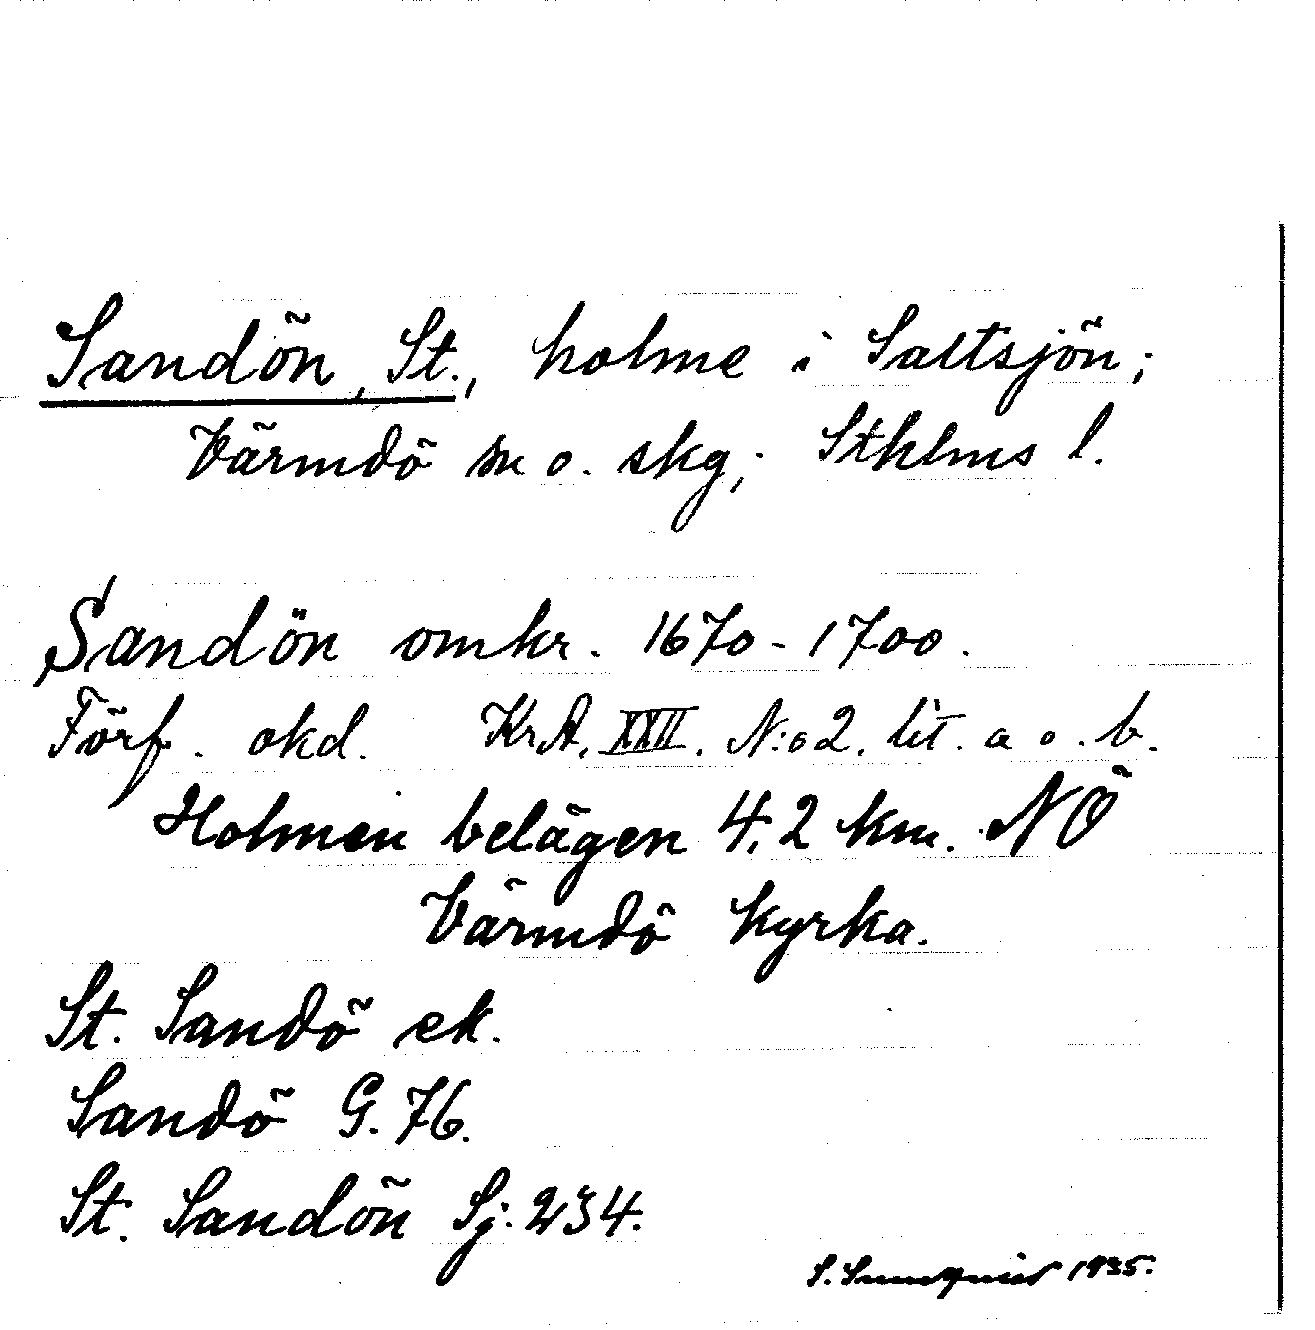 Sandön, St., holme i Saltsjön;
Värmdö sn o. skg; Sthlms l.
Sandön omkr. 1670-1700.
Förf. okd. KrA, XXII. N:o 2. lit. a o. b.
Holmen belägen 4,2 km. NÖ
Värmdö kyrka.
St. Sandö ek.
Sandö G. 76.
St. Sandön Sj. 234.
S. Sundquist 1935.